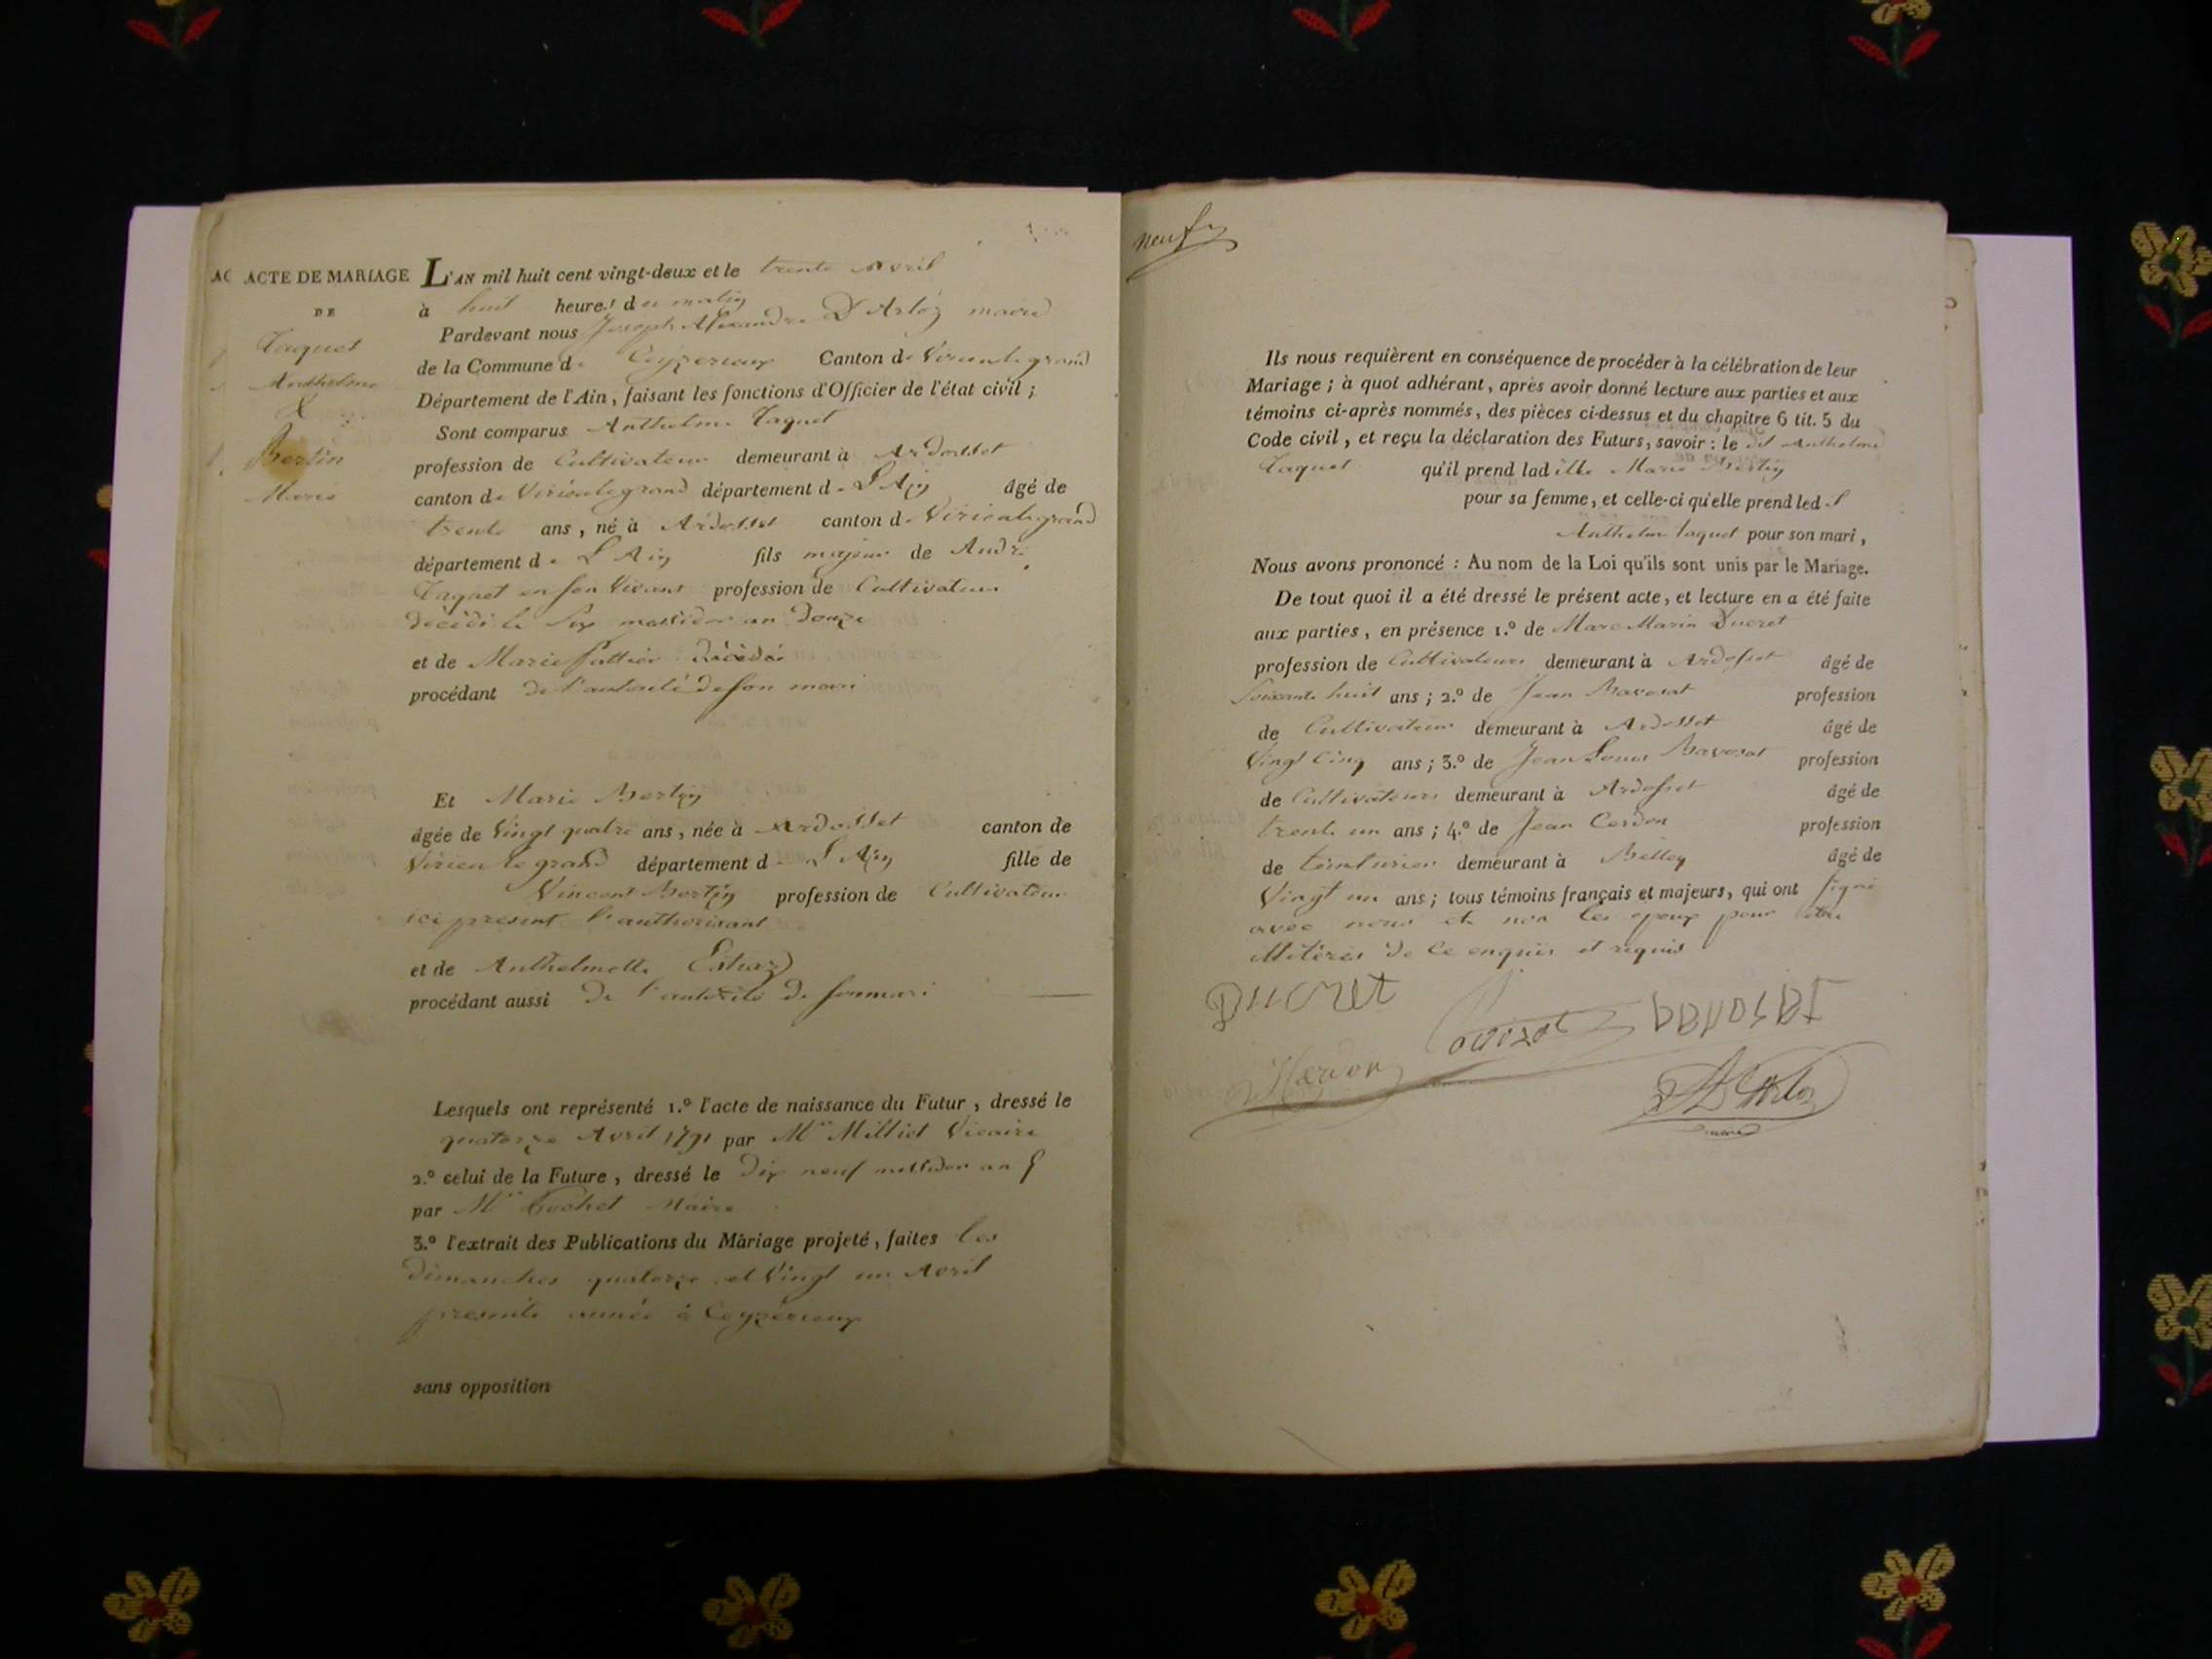 ACTE DE MARIAGE
DE
Taquet
Anthelme
&
Bertin
Marie
L'AN mil huit cent vingt-deux et le trente avril
à huit heures du matin
Pardevant nous Joseph Alexandre D'Arloz maire
de la Commune de Ceyzerieux Canton de Virieulegrand
Département de l'Ain, faisant les fonctions d'Officier de l'état civil ;
Sont comparus Anthelme Taquet
profession de Cultivateur demeurant à Ardosset
canton de Virieulegrand département de L'Ain âgé de
trente ans, né à Ardosset canton de Virieulegrand
département de L'Ain fils majeur de André
Taquet en son vivant profession de Cultivateur
décédé le six messidor an douze
et de Marie décédée
procédant de l'autorité de son mari
Et Marie Bertin
âgée de vingt quatre ans, née à Ardosset canton de
Virieu le grand département de L'Ain fille de
Vincent Bertin profession de Cultivateur
ici present l'authorisant
et de Anthelmette
procédant aussi de l'autorité de son mari
Lesquels ont représenté 1.º l'acte de naissance du Futur, dressé le
quatorze Avril 1791 par Mr Milliet Vicaire
2.º celui de la Future, dressé le dix neuf messidor an
par Mr Maire
3.º l'extrait des Publications du Mariage projeté, faites les
dimanches quatorze et vingt un avril
presente année à Ceyzerieux
sans opposition
neuf
Ils nous requièrent en conséquence de procéder à la célébration de leur
Mariage ; à quoi adhérant, après avoir donné lecture aux parties et aux
témoins ci-après nommés, des pièces ci-dessus et du chapitre 6 tit. 5 du
Code civil, et reçu la déclaration des Futurs, savoir : le dit Anthelme
Taquet qu'il prend ladille Marie Bertin
pour sa femme, et celle-ci qu'elle prend led
Anthelme Taquet pour son mari,
Nous avons prononcé : Au nom de la Loi qu'ils sont unis par le Mariage.
De tout quoi il a été dressé le présent acte, et lecture en a été faite
aux parties, en présence 1.º de Marc Marin Ducret
profession de Cultivateur demeurant à Ardosset âgé de
soixante huit ans ; 2.º de Jean Bavosat profession
de Cultivateur demeurant à Ardosset âgé de
vingt cinq ans ; 3.º de Jean Louis Bavosat profession
de Cultivateur demeurant à Ardosset âgé de
trente un ans ; 4.º de Jean Cerdon profession
de teinturier demeurant à Belley âgé de
vingt un ans ; tous témoins français et majeurs, qui ont signé
avec nous et non les epoux pour être
illiteres de ce enquis et requis
Ducret
D'Arloz
maire